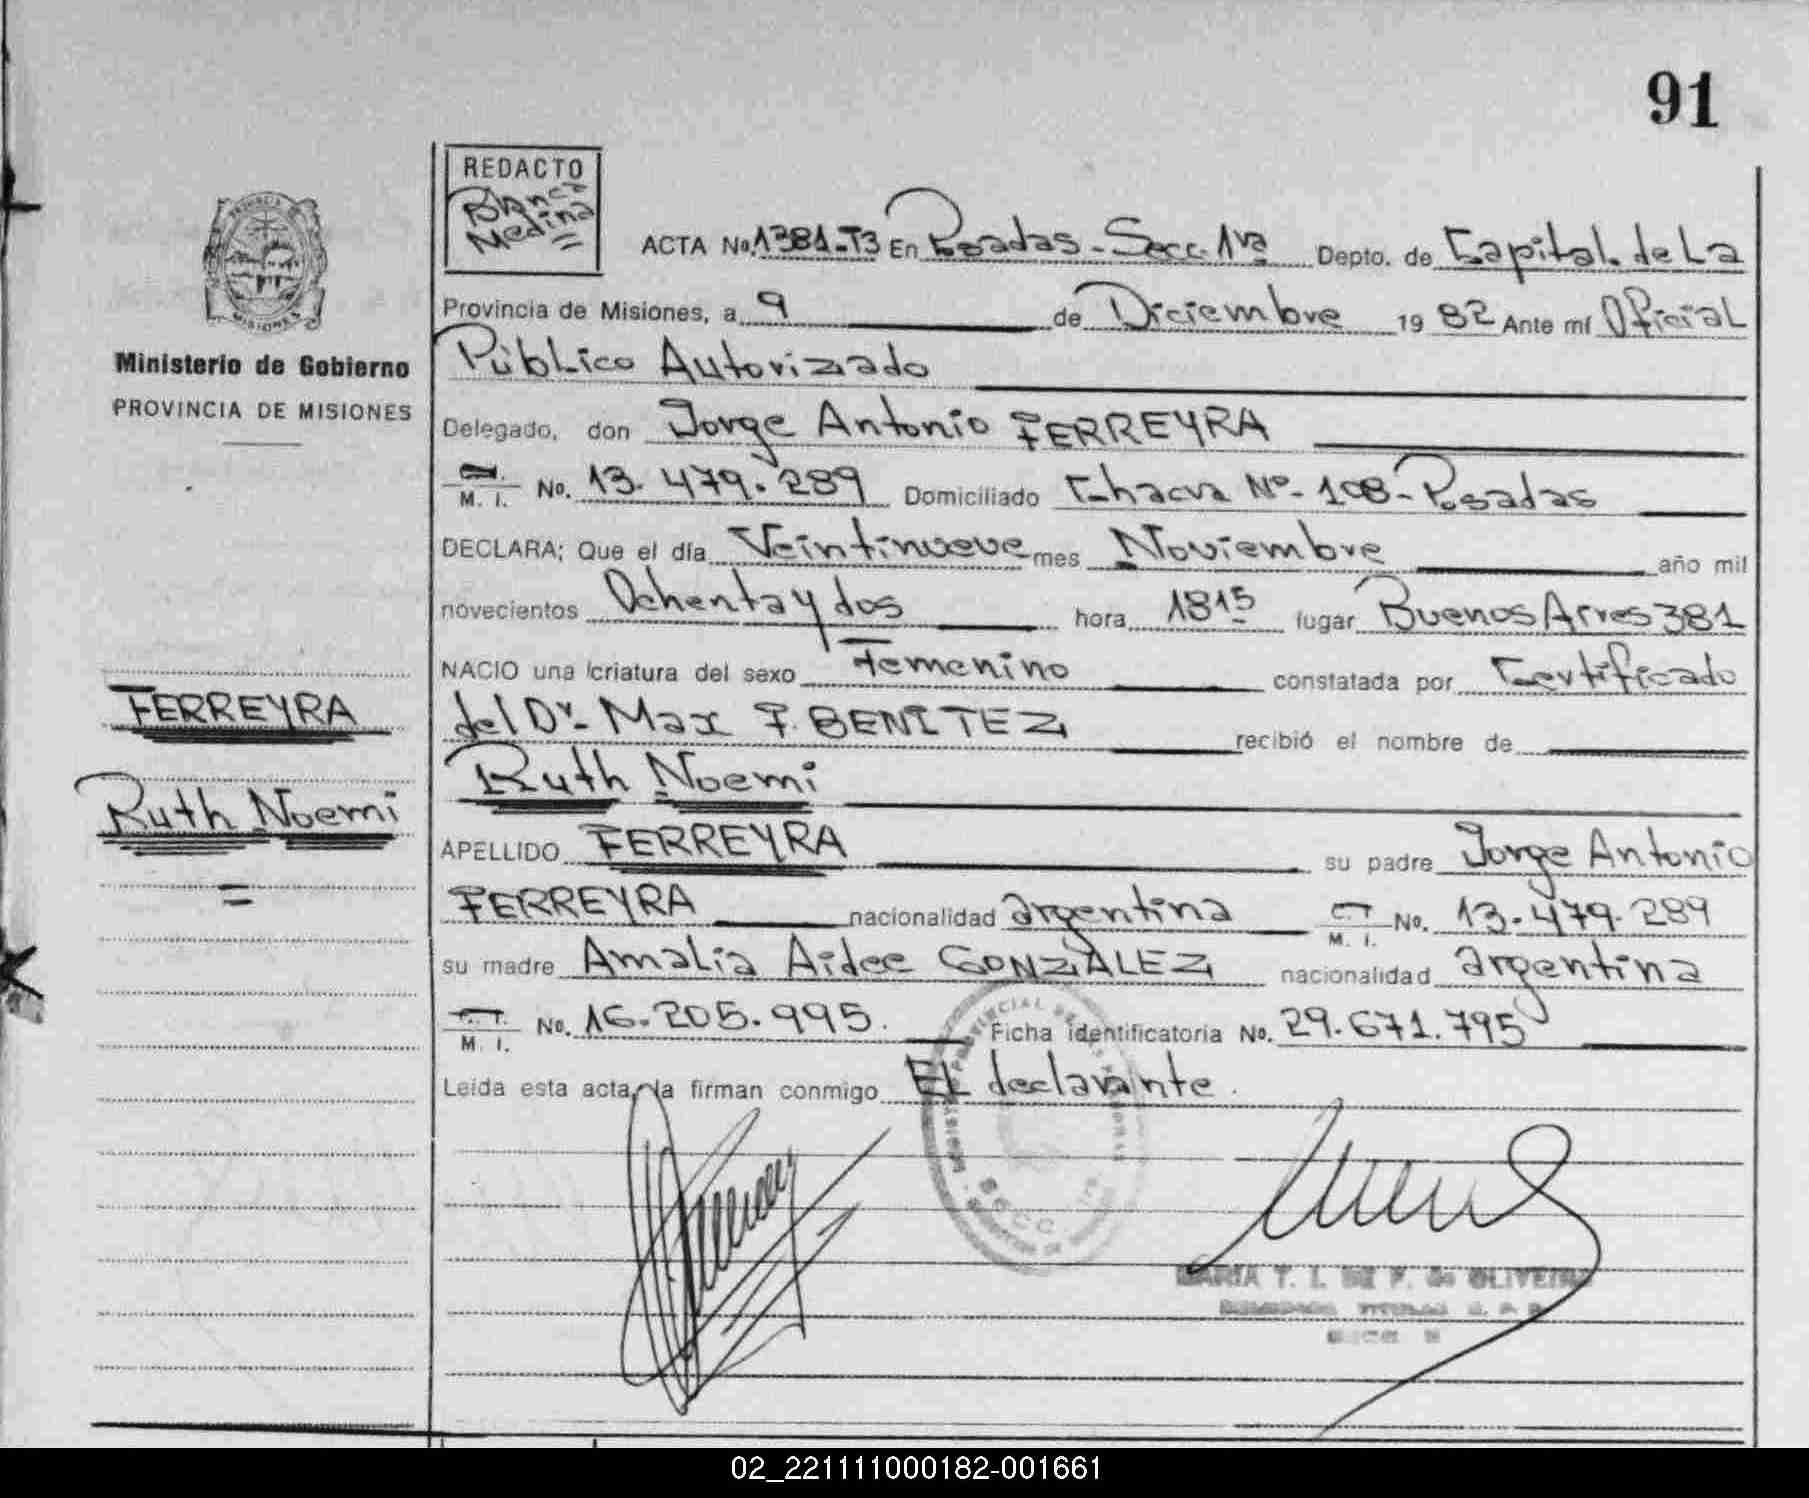 91
REDACTO
Blanca
Medina
ACTA No. 1381-T3 En Posadas-Secc. 1ra Depto. de Capital de La
Provincia de Misiones, a 9 de Diciembre 19 82 Ante mí Oficial
Público Autorizado
Delegado, don Jorge Antonio FERREYRA
M. I. No. 13.479.289 Domiciliado Chacra Nº-108-Posadas
DECLARA; Que el día Veintinueve mes Noviembre año mil
novecientos Ochenta y dos hora 18 15 lugar Buenos Aires 381
NACIO una criatura del sexo Femenino constatada por Certificado
del Dr. Max F. BENITEZ recibió el nombre de
Ruth Noemi
APELLIDO FERREYRA su padre Jorge Antonio
FERREYRA nacionalidad argentina M. I. No. 13.479.289
su madre Amalia Aidee GONZALEZ nacionalidad argentina
M. I. No. 16.205.995. Ficha identificatoria No. 29.671.795
Leída esta acta, la firman conmigo El declarante.
Ministerio de Gobierno
PROVINCIA DE MISIONES
FERREYRA
Ruth Noemi
MARIA T. I. DE F. de OLIVEIRA
02_221111000182-001661